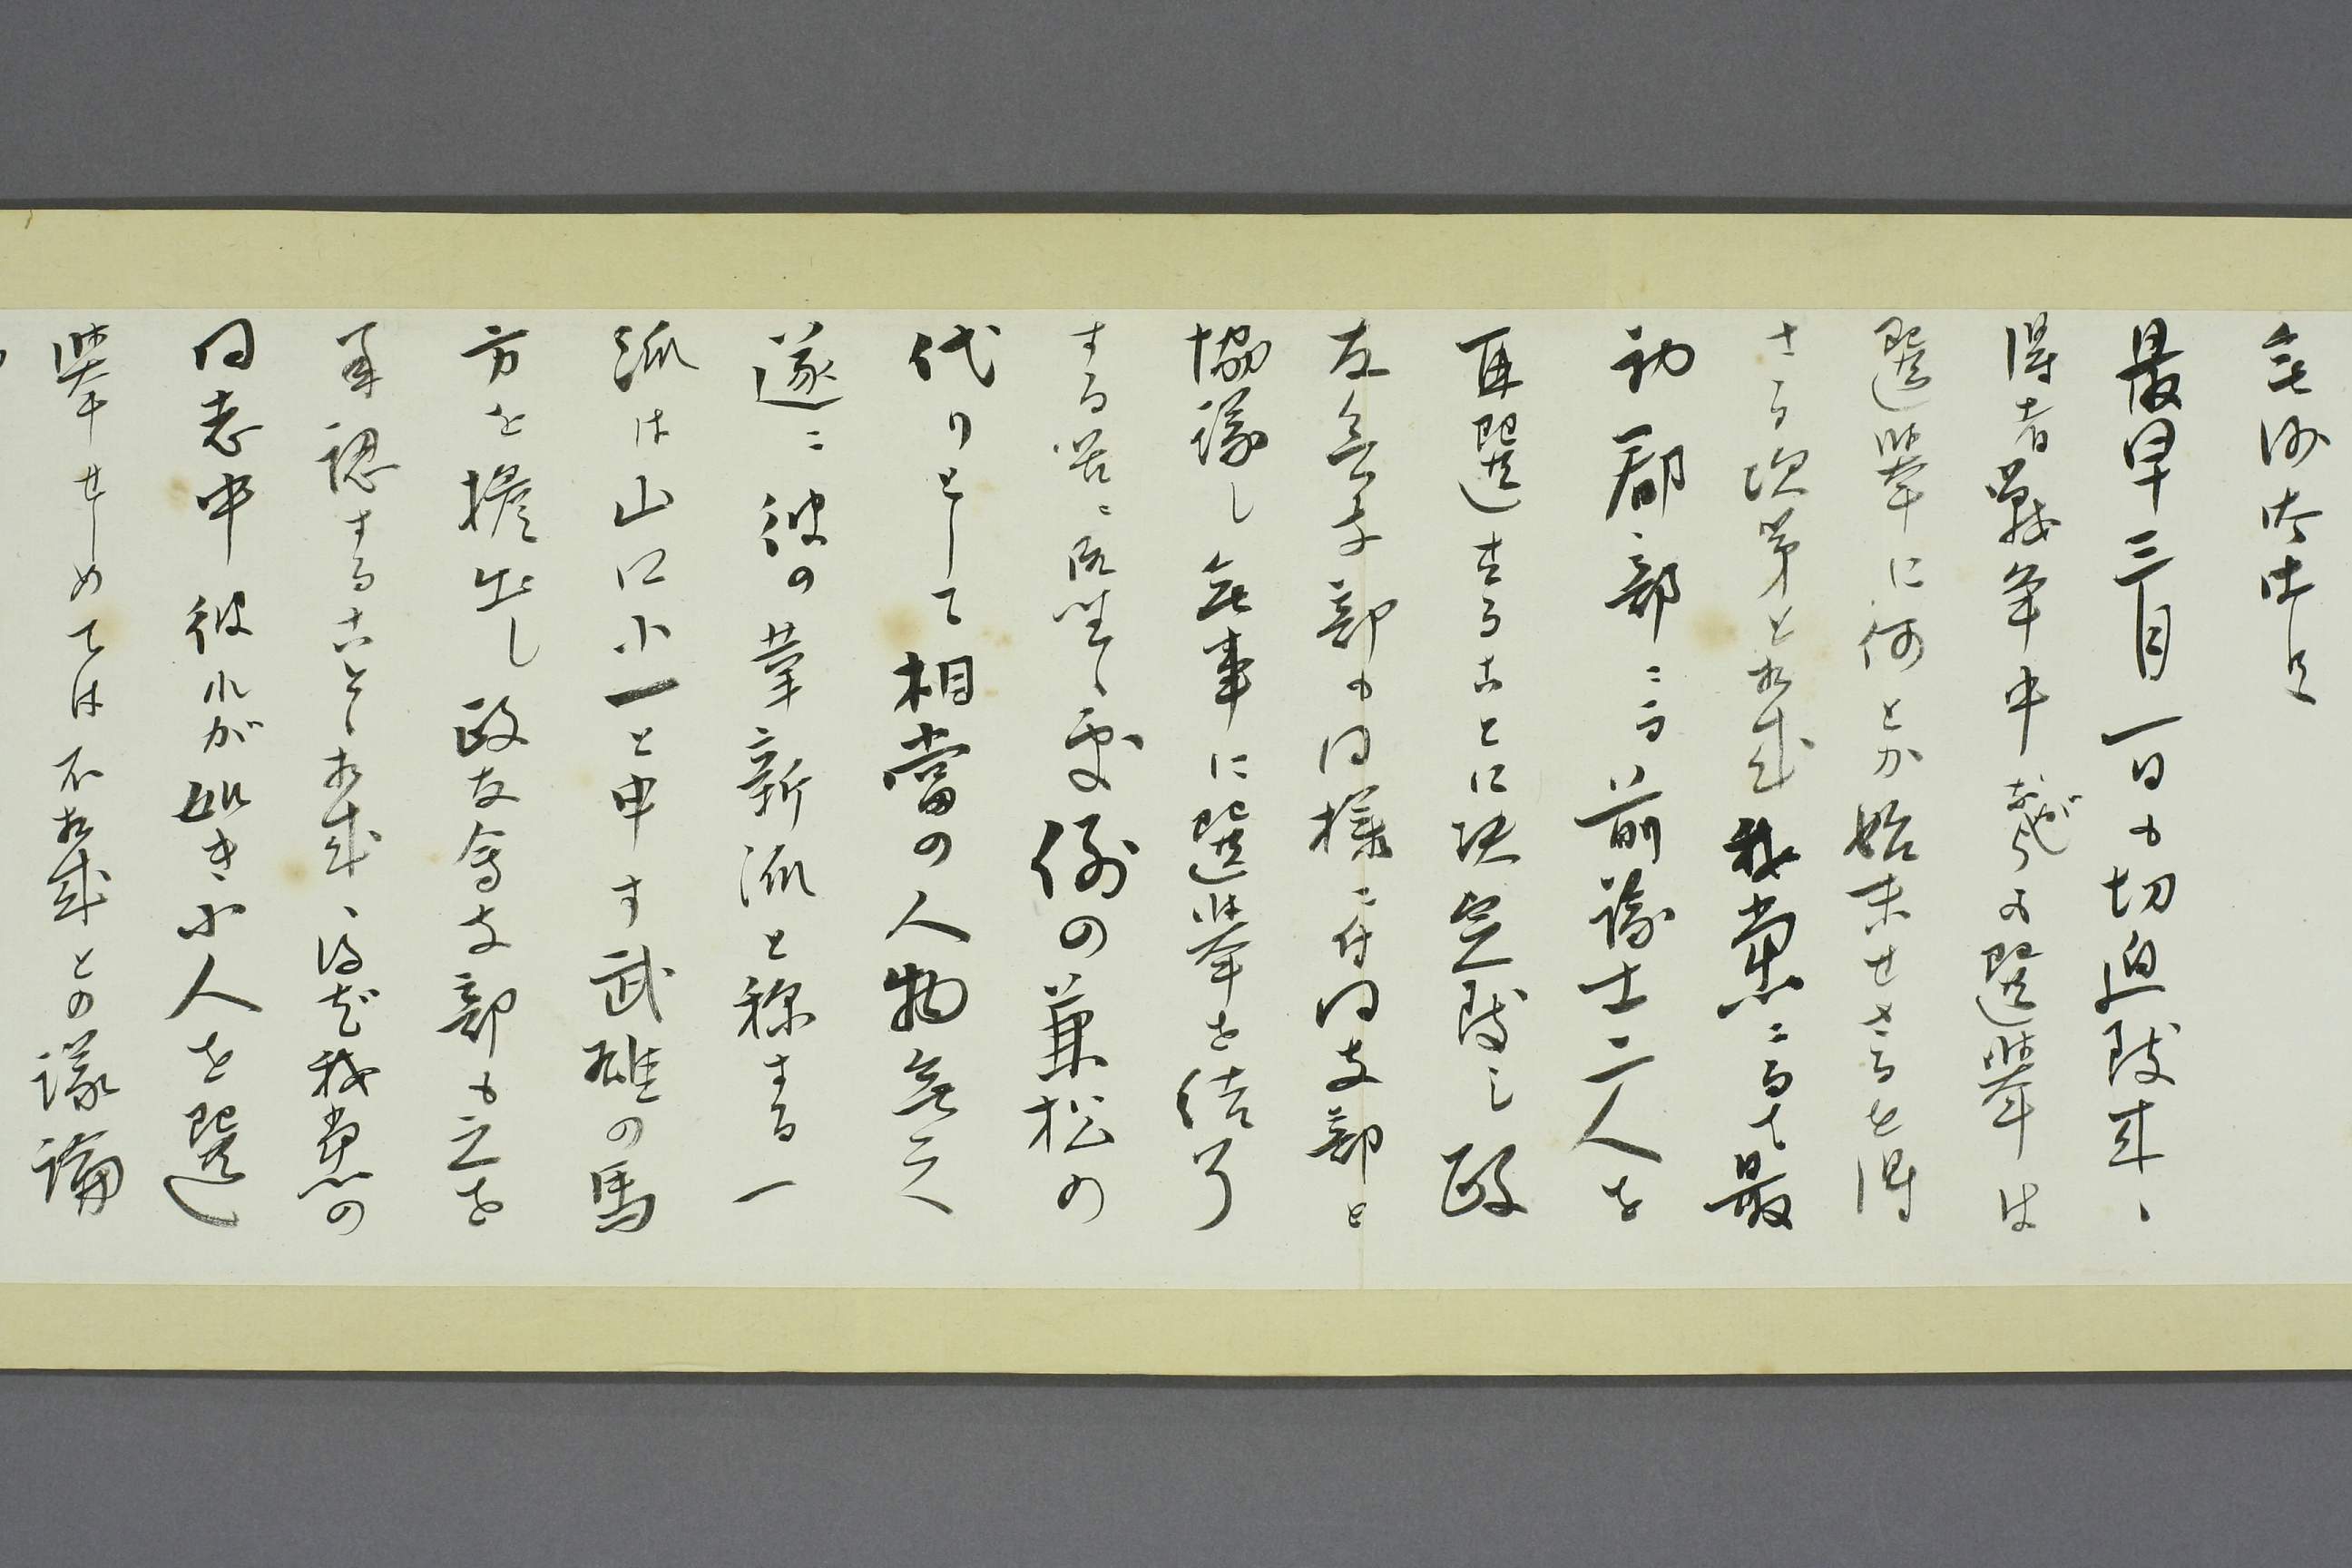 最早三月一日も切迫致来、
得者戦争中ながらも選挙は
選挙に何とか始末せざるを得
さる次第と相成我党にても最
初郡部にて前議士二人を
再選することに決定致し政
友会支部も同様に付同支部と
協議し無事に選挙を結了
する筈に候処、例の兼松の
代りとして相當の人物無之
遂に彼の輩新派と称する一
派は山口小一と申す武雄の馬
方を擔出し政友會支部も之を
承認することゝ相成、得ども我党の
同志中彼れが如き小人を選
挙せしめては不相成との議論